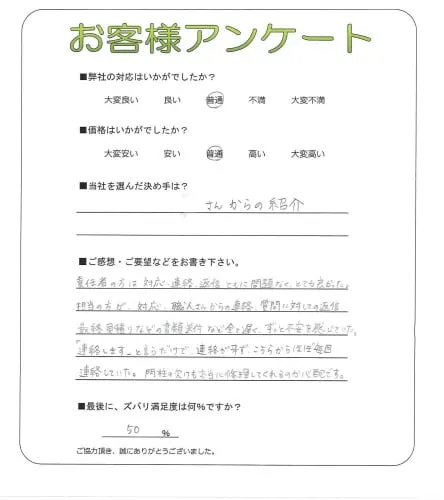 お客様アンケート
■弊社の対応はいかがでしたか?
大変良い 良い 普通 不満 大変不満
■価格はいかがでしたか?
大変安い 安い 普通 高い 大変高い
■当社を選んだ決め手は?
さんからの紹介
■ご感想・ご要望などをお書き下さい。
責任者の方は対応、連絡、返信ともに問題なく、とても良かった。
担当の方が、対応、職人さんからの連絡、質問に対しての返信、
最終見積りなどの書類送付など全て遅く、ずっと不安を感じていた。
「連絡します」と言うだけで、連絡が来ず、こちらからほぼ毎回
連絡していた。門柱の欠けも本当に修理してくれるのか心配です。
■最後に、ズバリ満足度は何%ですか?
50 %
ご協力頂き、誠にありがとうございました。